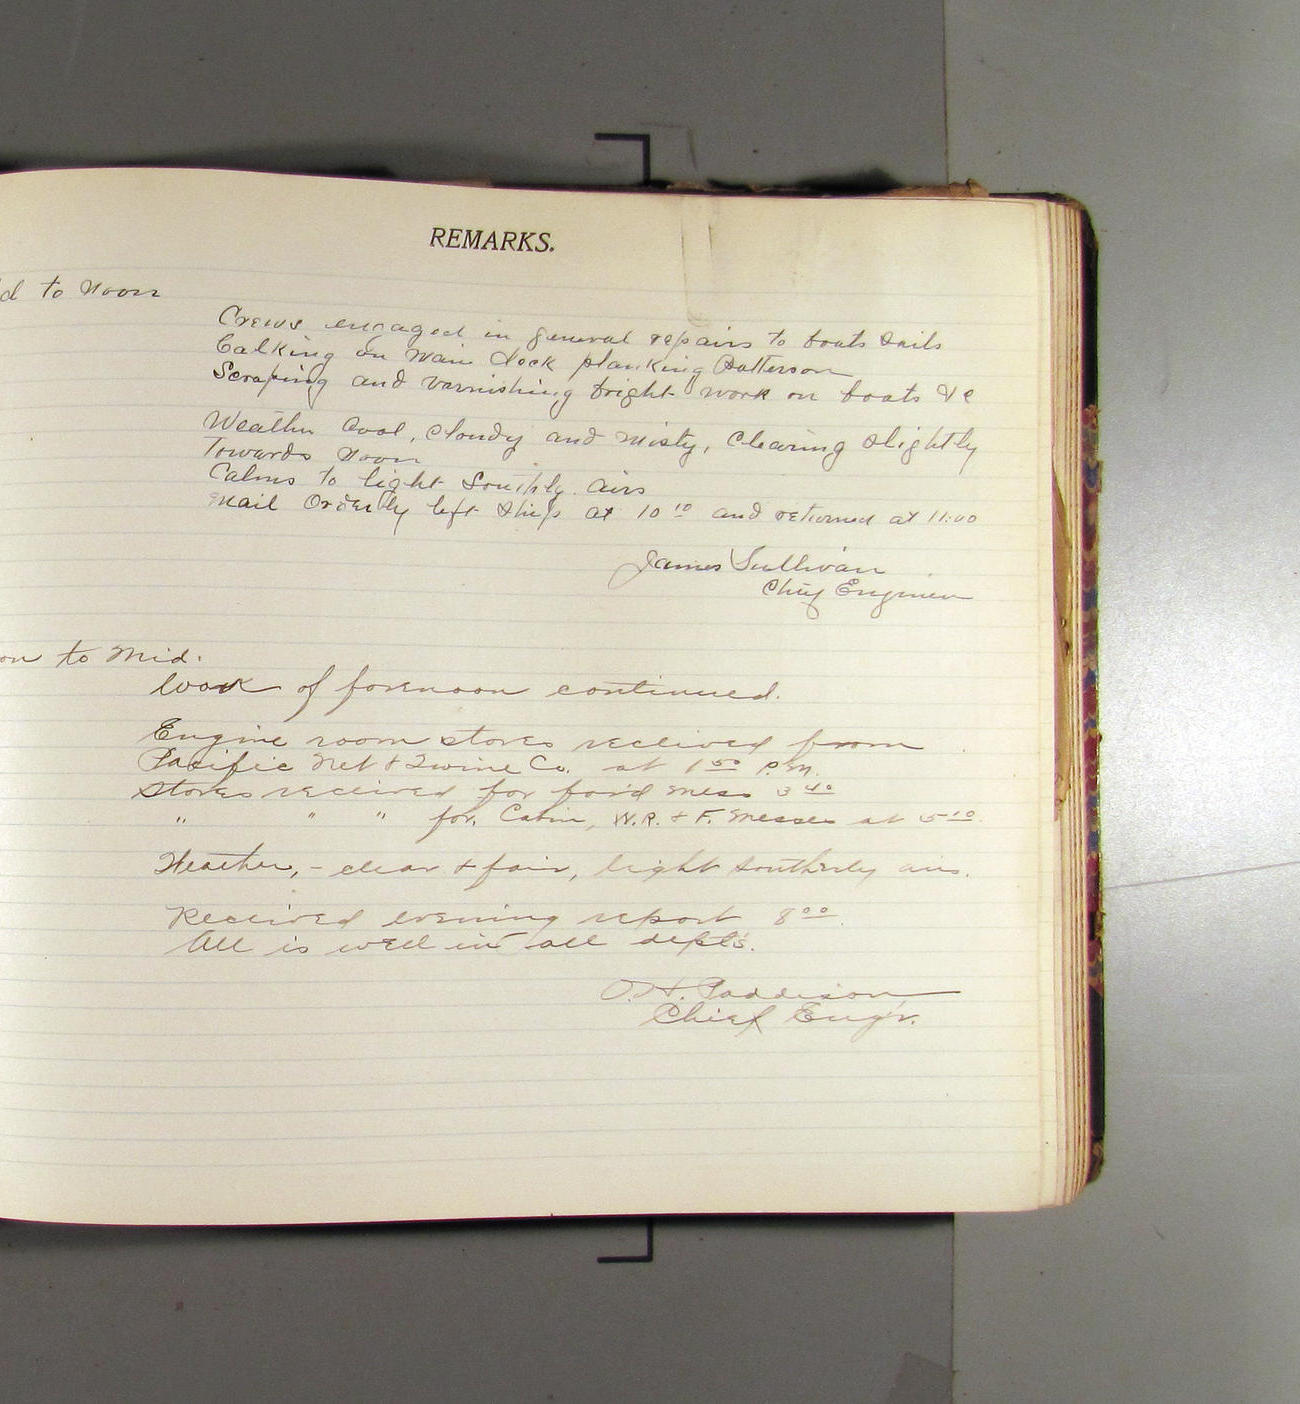 REMARKS.
d to Noon
Crews engaged in general repairs to boats sails
Calking on Main deck planking Patterson
Scraping and varnishing bright work on boats &c
Weather Cool, Cloudy and Misty, Clearing Slightly
Towards Noon
Calms to light Southly. Airs
Mail Orderly left Ship at 10 10 and returned at 11:00
James Sullivan
Chief Engineer
on to Mid:
Work of forenoon continued.
Engine room stores received from
Pacific Net & Twine Co. at 1 50 P.M.
Stores received for for'd Mess 3 40
" " " for. Cabin, W.R. & F. Messes at 5 10.
Weather, - clear & fair, light southerly airs.
Received evening report 8 00.
All is well in all depts.
O. H. Paddison
Chief Eng'r.